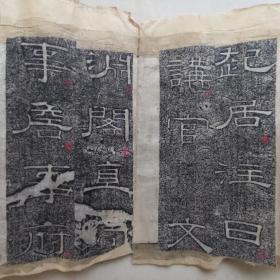 起居注日
講官文
渊閣直
事詹事府